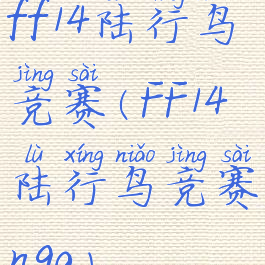 ff14陆行鸟
jìng sài
竞赛(FF14
lù xíng niǎo jìng sài
陆行鸟竞赛